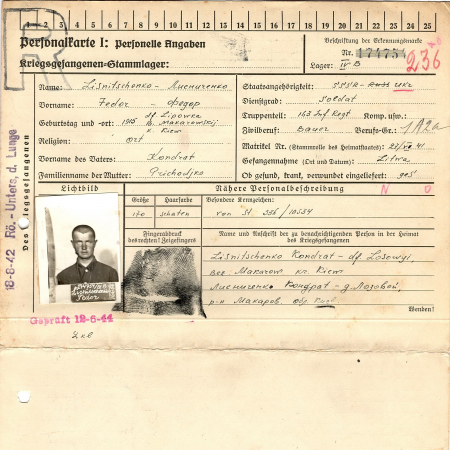 1 2 3 4 5 6 7 8 9 10 11 12 13 14 15 16 17 18 19 20 21 22 23 24 25
R
Personalkarte I: Personelle Angaben
Kriegsgefangenen-Stammlager:
Beschriftung der Erkennungsmarke
Nr. 174754
Lager: IV B
236
Des Kriegsgefangenen
Name: Lisnitschenko - Лисниченко
Vorname: Fedor - Федор
Geburtstag und -ort: 1915 df Lipowka
b. Makarowskij
k Kiew
Religion: ort
Vorname des Vaters: Kondrat
Familienname der Mutter: Prichodjko
Staatsangehörigkeit: SSSR Ukr
Dienstgrad: Soldat
Truppenteil: 163 Inf Regt Komp. usw.:
Zivilberuf: Bauer Berufs-Gr.: 1A2a
Matrikel Nr. (Stammrolle des Heimatstaates): 41
Gefangennahme (Ort und Datum): Litwa
Ob gefund, krank, verwundet eingeliefert: ges
Lichtbild
Nähere Personalbeschreibung
N O
Größe Haarfarbe Besondere Kennzeichen:
170 schaten von St 336 / 10554
Fingerabdruck
des rechten! Zeigefingers
Name und Anschrift der zu benachrichtigenden Person in der Heimat
des Kriegsgefangenen
Lisnitschenko Kondrat - df Losowyi
bez Makarow kr. Kiew
Лисниченко Кондрат - д. Лозовой,
р-н Макаров, обл Киев
Wenden!
Fedor
18-8-42 Rö.-Unters, d. Lunge
Geprüft 12-6-44